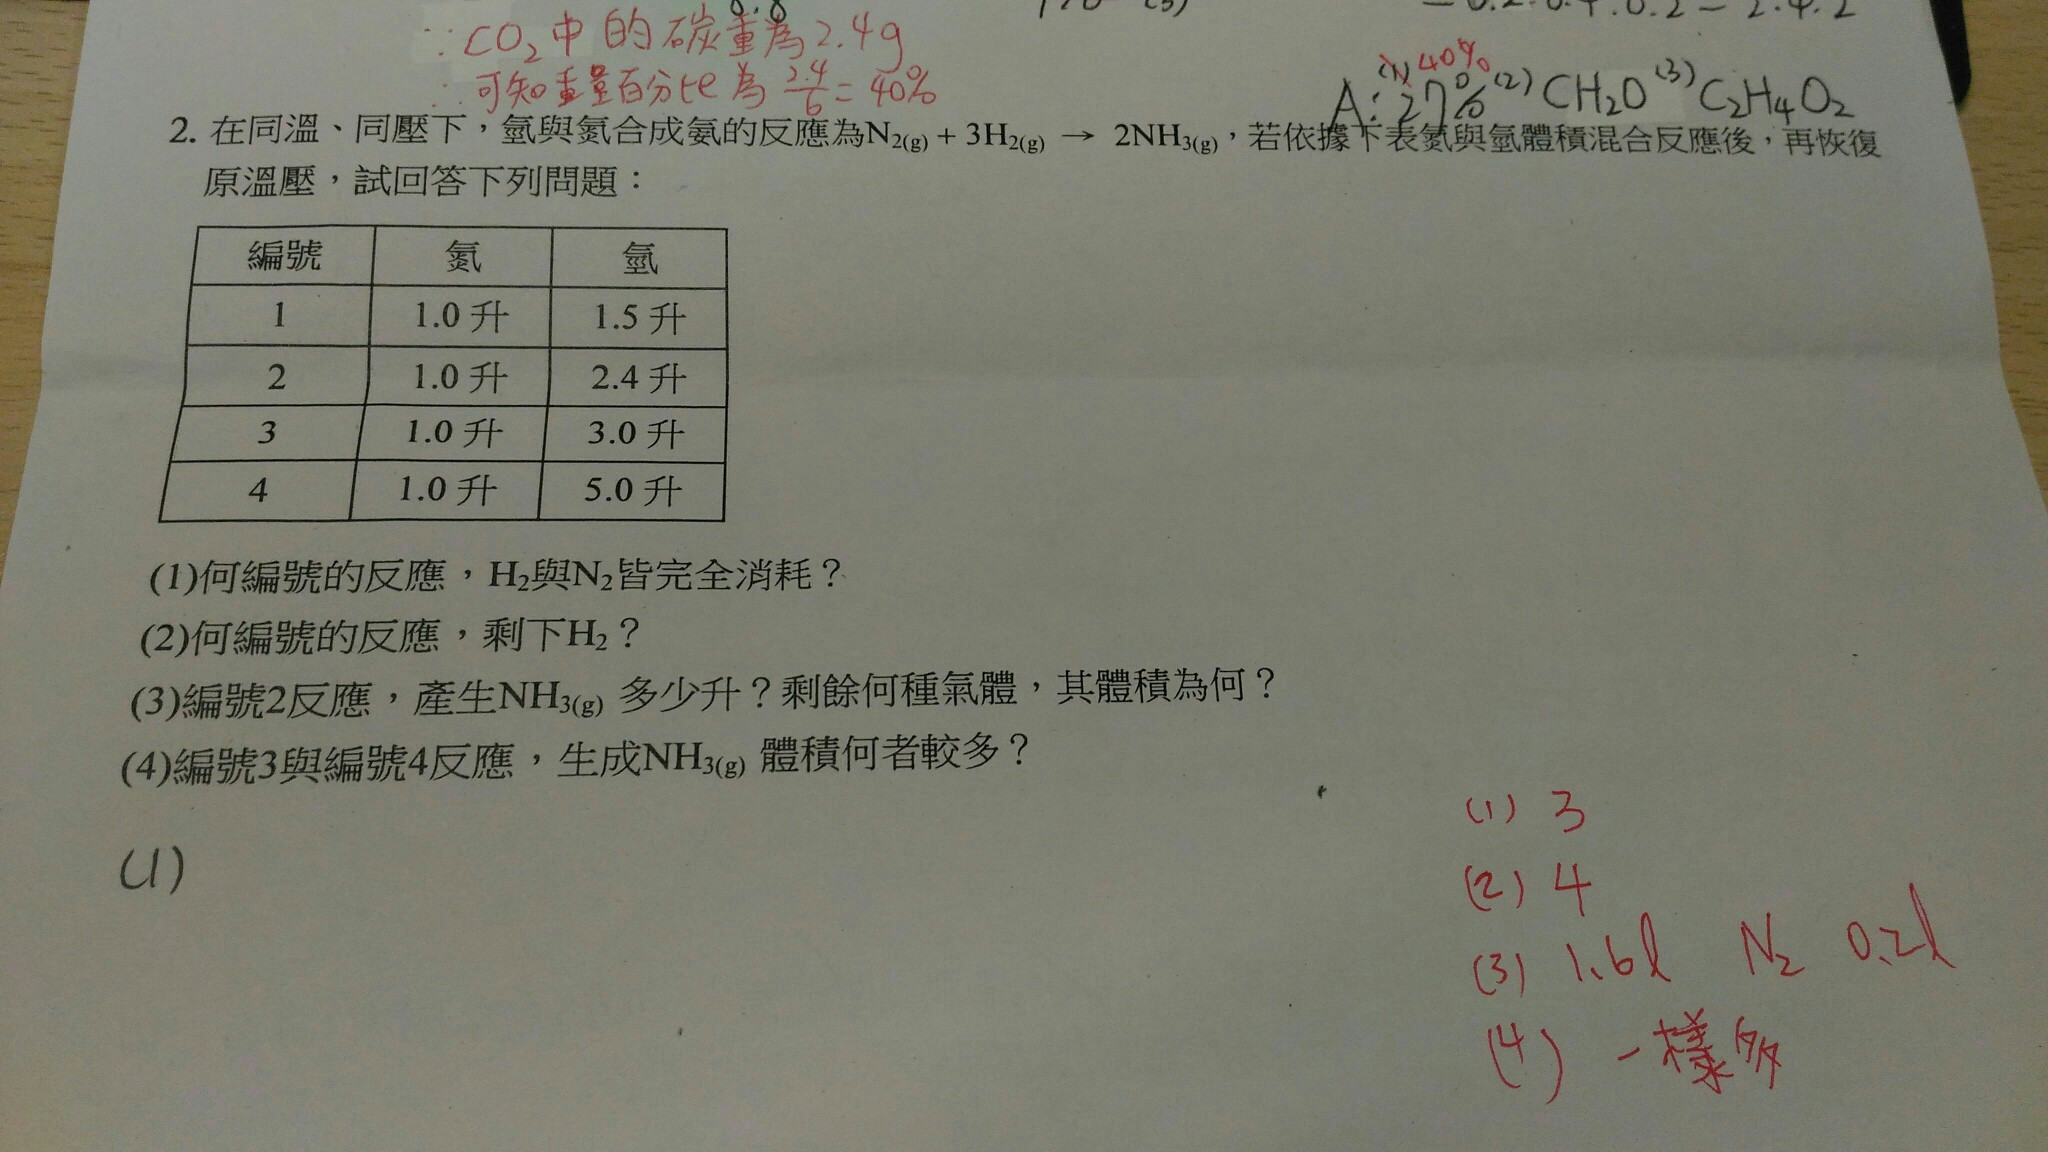 ∵CO₂中的碳重為2.4g
∴可知重量百分比為2.4/6=40%
40%
A:(1)27% (2)CH₂O (3)C₂H₄O₂
2. 在同溫、同壓下，氫與氮合成氨的反應為N₂(g) + 3H₂(g) → 2NH₃(g)，若依據下表氮與氫體積混合反應後，再恢復
原溫壓，試回答下列問題：
編號 氮 氫
1 1.0 升 1.5 升
2 1.0 升 2.4 升
3 1.0 升 3.0 升
4 1.0 升 5.0 升
(1)何編號的反應，H₂與N₂皆完全消耗？
(2)何編號的反應，剩下H₂？
(3)編號2反應，產生NH₃(g) 多少升？剩餘何種氣體，其體積為何？
(4)編號3與編號4反應，生成NH₃(g) 體積何者較多？
(1)
(1) 3
(2) 4
(3) 1.6l N₂ 0.2l
(4) 一樣多